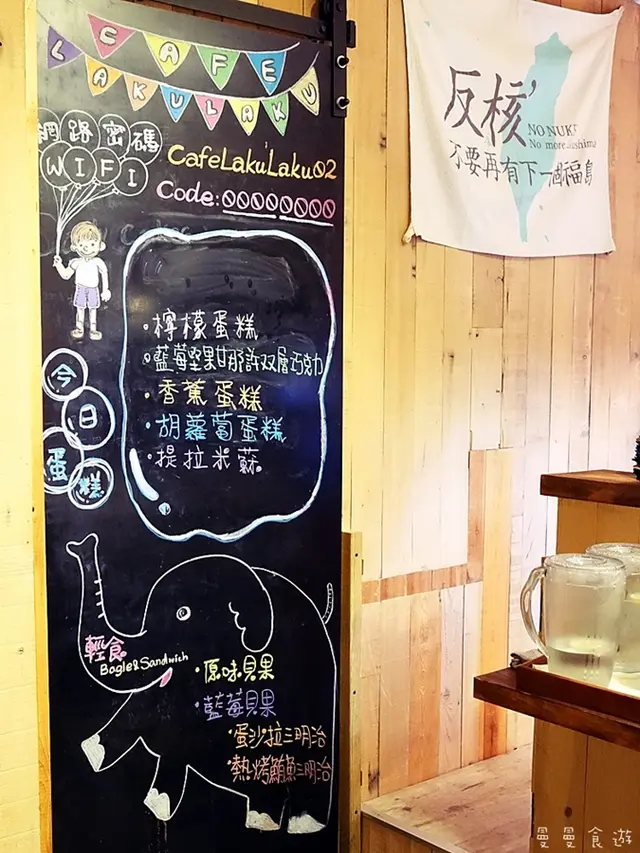 CAFE
LAKULAKU
網路密碼
WIFI
CafeLakuLaku02
Code:00000000
今日蛋糕
·檸檬蛋糕
·藍莓堅果甘那許双層巧克力
·香蕉蛋糕
·胡蘿蔔蛋糕
·提拉米蘇
輕食
Bagle&Sandwich
·原味貝果
·藍莓貝果
·蛋沙拉三明治
·熱烤鮪魚三明治
反核
NO NUKE
No more
不要再有下一個福島
曼曼食遊